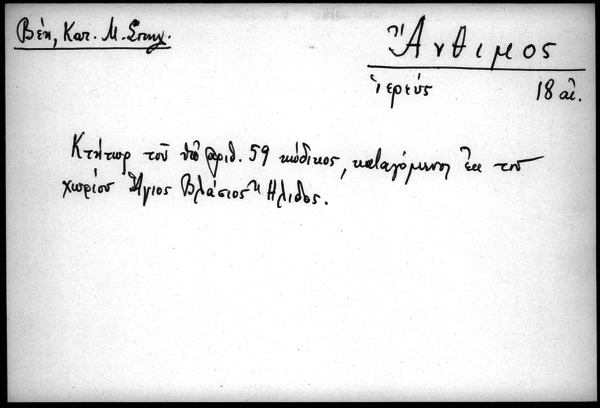 Βέη, Κατ. Μ. Σπηλ.
Ἄνθιμος
ἱερεύς 18 αἰ.
Κτήτωρ τοῦ ὑπ' ἀριθ. 59 κώδικος, καταγόμενος ἐκ τοῦ
χωρίου Ἅγιος Βλάσιος Ἠλιδος.